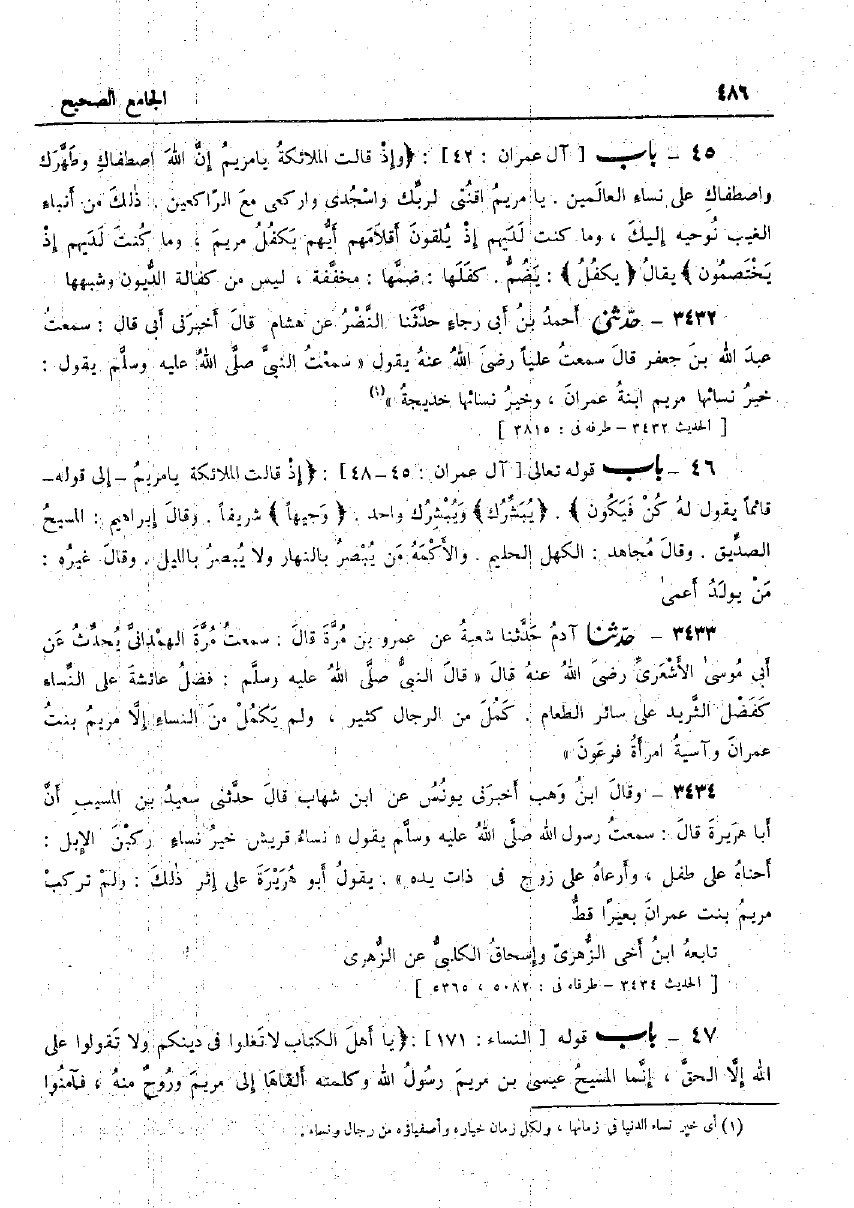 ٤٨٦ الجامع الصحيح
٤٥ - باب [ آل عمران : ٤٢ ] : ﴿وإذْ قالت الملائكةُ يامريمُ إنَّ اللهَ اصطفاكِ وطَهَّرَك
واصطفاكِ على نساءِ العالَمين . يا مريمُ اقنُتى لربِّك واسْجُدى واركعى معَ الرَّاكعين . ذٰلكَ من أنباء
الغيب نُوحيه إليكَ ، وما كنت لَدَيهم إذْ يُلقونَ أقلامَهم أيُّهم يَكفُلُ مريمَ ، وما كُنتَ لَدَيهم إذْ
يَخْتَصمُون ﴾ يقالُ ﴿ يكفُلُ ﴾ : يَضُمُّ . كفَلَها : ضمَّها : مخفَّفة ، ليس من كفالة الدُّيون وشبهها
٣٤٣٢ - حدّثنى أحمدُ بنُ أبى رجاءٍ حدَّثَنا النَّضْرُ عن هشام قالَ أخبرَنى أبى قال : سمعتُ
عبدَ الله بنَ جعفر قالَ سمعتُ علياً رضىَ اللهُ عنهُ يقول « سمعْتُ النبىَّ صلَّى اللهُ عليه وسلَّم يقول :
خيرُ نسائها مريم ابنةُ عمرانَ ، وخيرُ نسائها خديجةُ »(١)
[ الحديث ٣٤٣٢ - طرفه فى : ٣٨١٥ ]
٤٦ - باب قوله تعالى [ آل عمران : ٤٥ - ٤٨ ] : ﴿ إذْ قالت الملائكة يامريمُ - إلى قوله -
فانما يقول لهُ كُنْ فَيَكُون ﴾ . ﴿ يُبَشِّرُك ﴾ ويَبْشِرُك واحد . ﴿ وَجيهاً ﴾ شريفاً . وقالَ إبراهيم : المسيحُ
الصدِّيق . وقالَ مُجاهد : الكهل الحليم . والأكْمَهُ مَن يُبْصرُ بالنهار ولا يُبصرُ بالليل . وقالَ غيرُه :
مَنْ يولَدُ أعمىٰ
٣٤٣٣ - حدّثنا آدمُ حَدَّثنا شعبةُ عن عمرو بن مُرَّةَ قالَ : سمعتُ مُرَّةَ الهمْدانىَّ يُحدِّثُ عَن
أبى مُوسىٰ الأشْعَرىِّ رضىَ اللهُ عنهُ قالَ « قالَ النبىُّ صلَّى اللهُ عليه وسلَّم : فضلُ عائشةَ على النِّساء
كَفَضْل الثَّريد على سائر الطعام . كَمُلَ من الرجال كثير ، ولم يَكمُلْ منَ النساءِ إلَّا مريمُ بنتُ
عمرانَ وآسيةُ امرأةُ فرعَونَ »
٣٤٣٤ - وقالَ ابنُ وَهب أخبرَنى يونُسُ عن ابن شهاب قالَ حدَّثنى سعيدُ بن المسيبِ أنَّ
أبا هرَيرةَ قالَ : سمعتُ رسول الله صلَّى اللهُ عليه وسلَّم يقول « نساءُ قريش خيرُ نساءٍ ركبْنَ الإبل :
أحناهُ على طفل ، وأرعاهُ على زوج فى ذات يده » . يقولُ أبو هُرَيْرَةَ على إثر ذٰلكَ : ولمْ تركبْ
مريمُ بنت عمرانَ بعيرًا قطُّ
تابعهُ ابنُ أخى الزُّهرىّ وإسحاقُ الكلبىُّ عن الزُّهرى
[ الحديث ٣٤٣٤ - طرفاه فى : ٥٠٨٢ ، ٥٣٦٥ ]
٤٧ - باب قوله [ النساء : ١٧١ ] : ﴿ يا أهلَ الكتاب لا تَغلوا فى دينكم ولا تَقولوا على
الله إلَّا الحقَّ ، إنَّما المسيحُ عيسى بن مريمَ رسُولُ الله وكلمته ألقاهَا إلى مريمَ ورُوحٌ منهُ ، فآمنُوا
(١) أى خير نساء الدنيا فى زمانها ، ولكل زمان خياره وأصفياؤه من رجال ونساء .